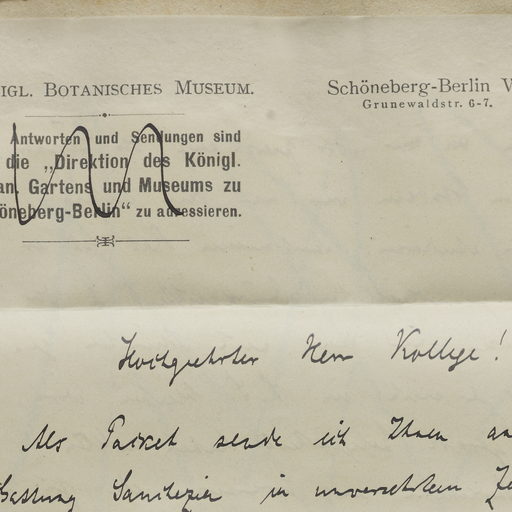 IGL. BOTANISCHES MUSEUM.
Schöneberg-Berlin W
Grunewaldstr. 6-7.
Antworten und Sendungen sind
die „Direktion des Königl.
an. Gartens und Museums zu
öneberg-Berlin“ zu adressieren.
Hochgeehrter Herr Kollege!
Als Packet sende ich Ihnen
in unversehrtem